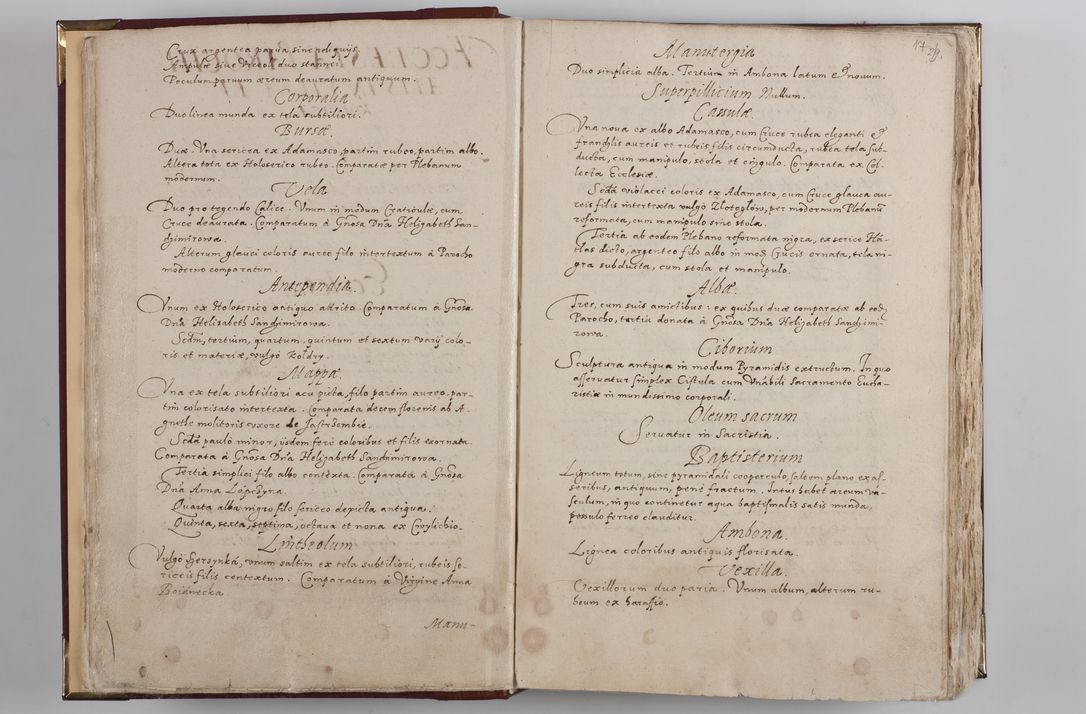 Crux argentea parva, sine reliquijs.
Ampulæ sive Vrceoli duo stannei
Peculum parvum æreum deauratum antiquum.
Corporalia
Duo linea munda ex tela subtiliori.
Bursæ.
Duæ. Vna sericea ex Adamasco, partim rubeo, partim albo.
Altera tota ex Holoserico rubeo. Comparatæ per Plebanum
modernum.
Vela
Duo pro tegendo Calice. Vnum in modum Craticulæ, cum
Cruce deaurata. Comparatum à Gnosa Dna Helizabeth San-
dzimirowa.
Alterum glauci coloris aureo filo intertextum à Parocho
moderno comparatum.
Antependia.
Vnum ex Holoserico antiquo attrito. Comparatum à Gnosa
Dna Helisabeth Sandzimirowa.
Scdm, tertium, quartum, quintum et sextum varij colo-
ris et materiæ, vulgo Koldry.
Mappæ.
Vna ex tela subtiliori acu picta, filo partim aureo, par-
tim colorisato intertexta. Comparata decem florenis ab A-
gnethe molitoris uxore de Jastrzembie.
Scda paulò minor, ijsdem ferè coloribus et filis exornata.
Comparata à Gnosa Dna Helizabeth Sandzimirowa.
Tertia simplici filo albo contexta. Comparata à Gnosa
Dna Anna Lopczyna.
Quarta alba nigro filo sericeo depicta antiqua.
Quinta, sexta, septima, octava et nona ex Cwylichio.
Lintheolum
Vulgò Herzynká, unum saltim ex tela subtiliori, rubeis se-
riceis filis contextum. Comparatum à Virgine Anna
Boianecka
Manu-
17
Manutergia
Duo simplicia alba. Tertium in Ambona latum et novum.
Superpillicium Nullum.
Casulæ.
Vna nova ex albo Adamasco, cum Cruce rubea eleganti et
frandzlis aureis et rubeis filis circumducta, rubea tela sub-
ducta, cum manipulo, stola et cingulo. Comparata ex Col-
lecta Ecclesiæ.
Scda violacei coloris ex Adamasco, cum Cruce glauca au-
reis filis intertexta vulgò Zlotoglow, per modernum Plebanu
reformata, cum manipulo sine stola.
Tertia ab eodem Plebano reformata nigra, ex serico Há-
tlas dicto, argenteo filo albo in mod. Crucis ornata, tela ni-
gra subducta, cum stola et manipulo.
Albæ.
Tres, cum suis amictibus: ex quibus duæ comparatæ ab eod.
Parocho, tertia donata à Gnosa Dna Helizabeth Sandzimi-
rowa.
Ciborium
Sculptura antiqua in modum Pyramidis extructum. In quo
asservatur simplex Cistula cum Vnabili Sacramento Eucha-
ristiæ in mundissimo corporali.
Oleum sacrum
Servatur in Sacristia.
Baptisterium
Ligneum totum, sine pyramidali cooperculo, saltem plano ex as-
seribus, antiquum, penè fractum. Intus habet æreum va-
sculum, in quo continetur aqua baptismalis satis munda,
pessulo ferreo clauditur.
Ambona.
Lignea coloribus antiquis florisata.
Vexilla.
Vexillorum duo paria. Vnum album, alterum ru-
beum ex harassio.